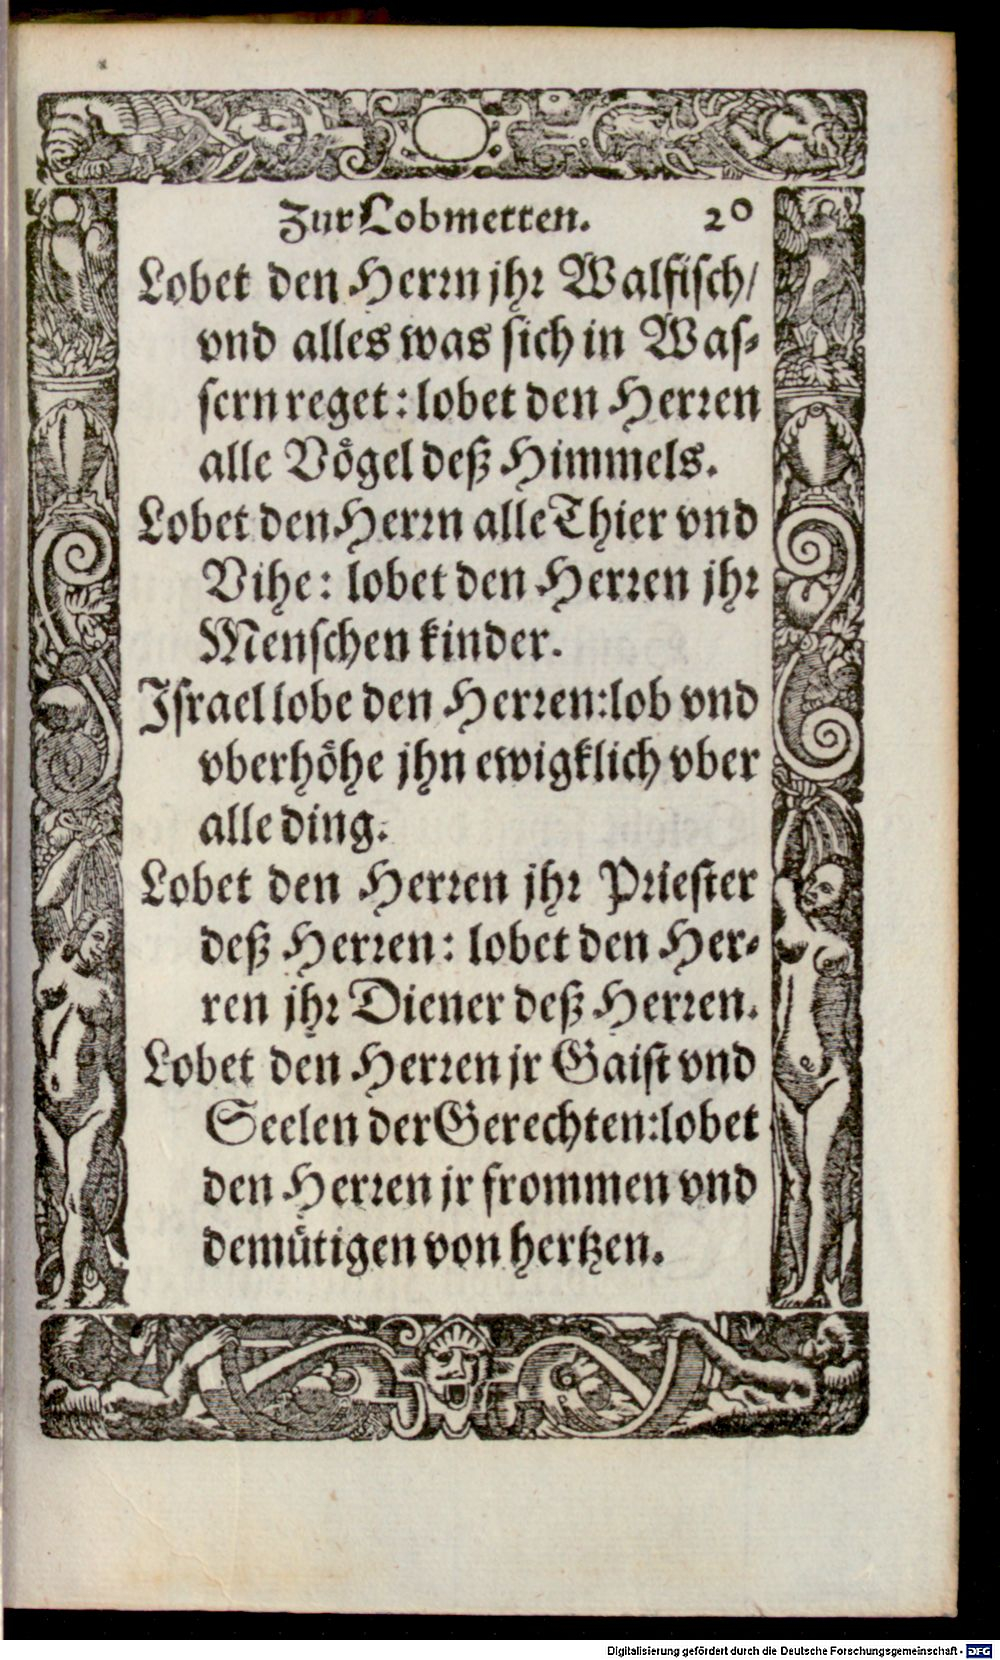 Zur Lobmetten. 20
Lobet den Herrn jhr Walfisch/
vnd alles was sich in Was-
sern reget: lobet den Herren
alle Vögel deß Himmels.
Lobet den Herrn alle Thier vnd
Vihe: lobet den Herren jhr
Menschen kinder.
Israel lobe den Herren: lob vnd
vberhöhe jhn ewigklich vber
alle ding.
Lobet den Herren jhr Priester
deß Herren: lobet den Her-
ren jhr Diener deß Herren.
Lobet den Herren jr Gaist vnd
Seelen der Gerechten: lobet
den Herren jr frommen vnd
demütigen von hertzen.
Digitalisierung gefördert durch die Deutsche Forschungsgemeinschaft - DFG